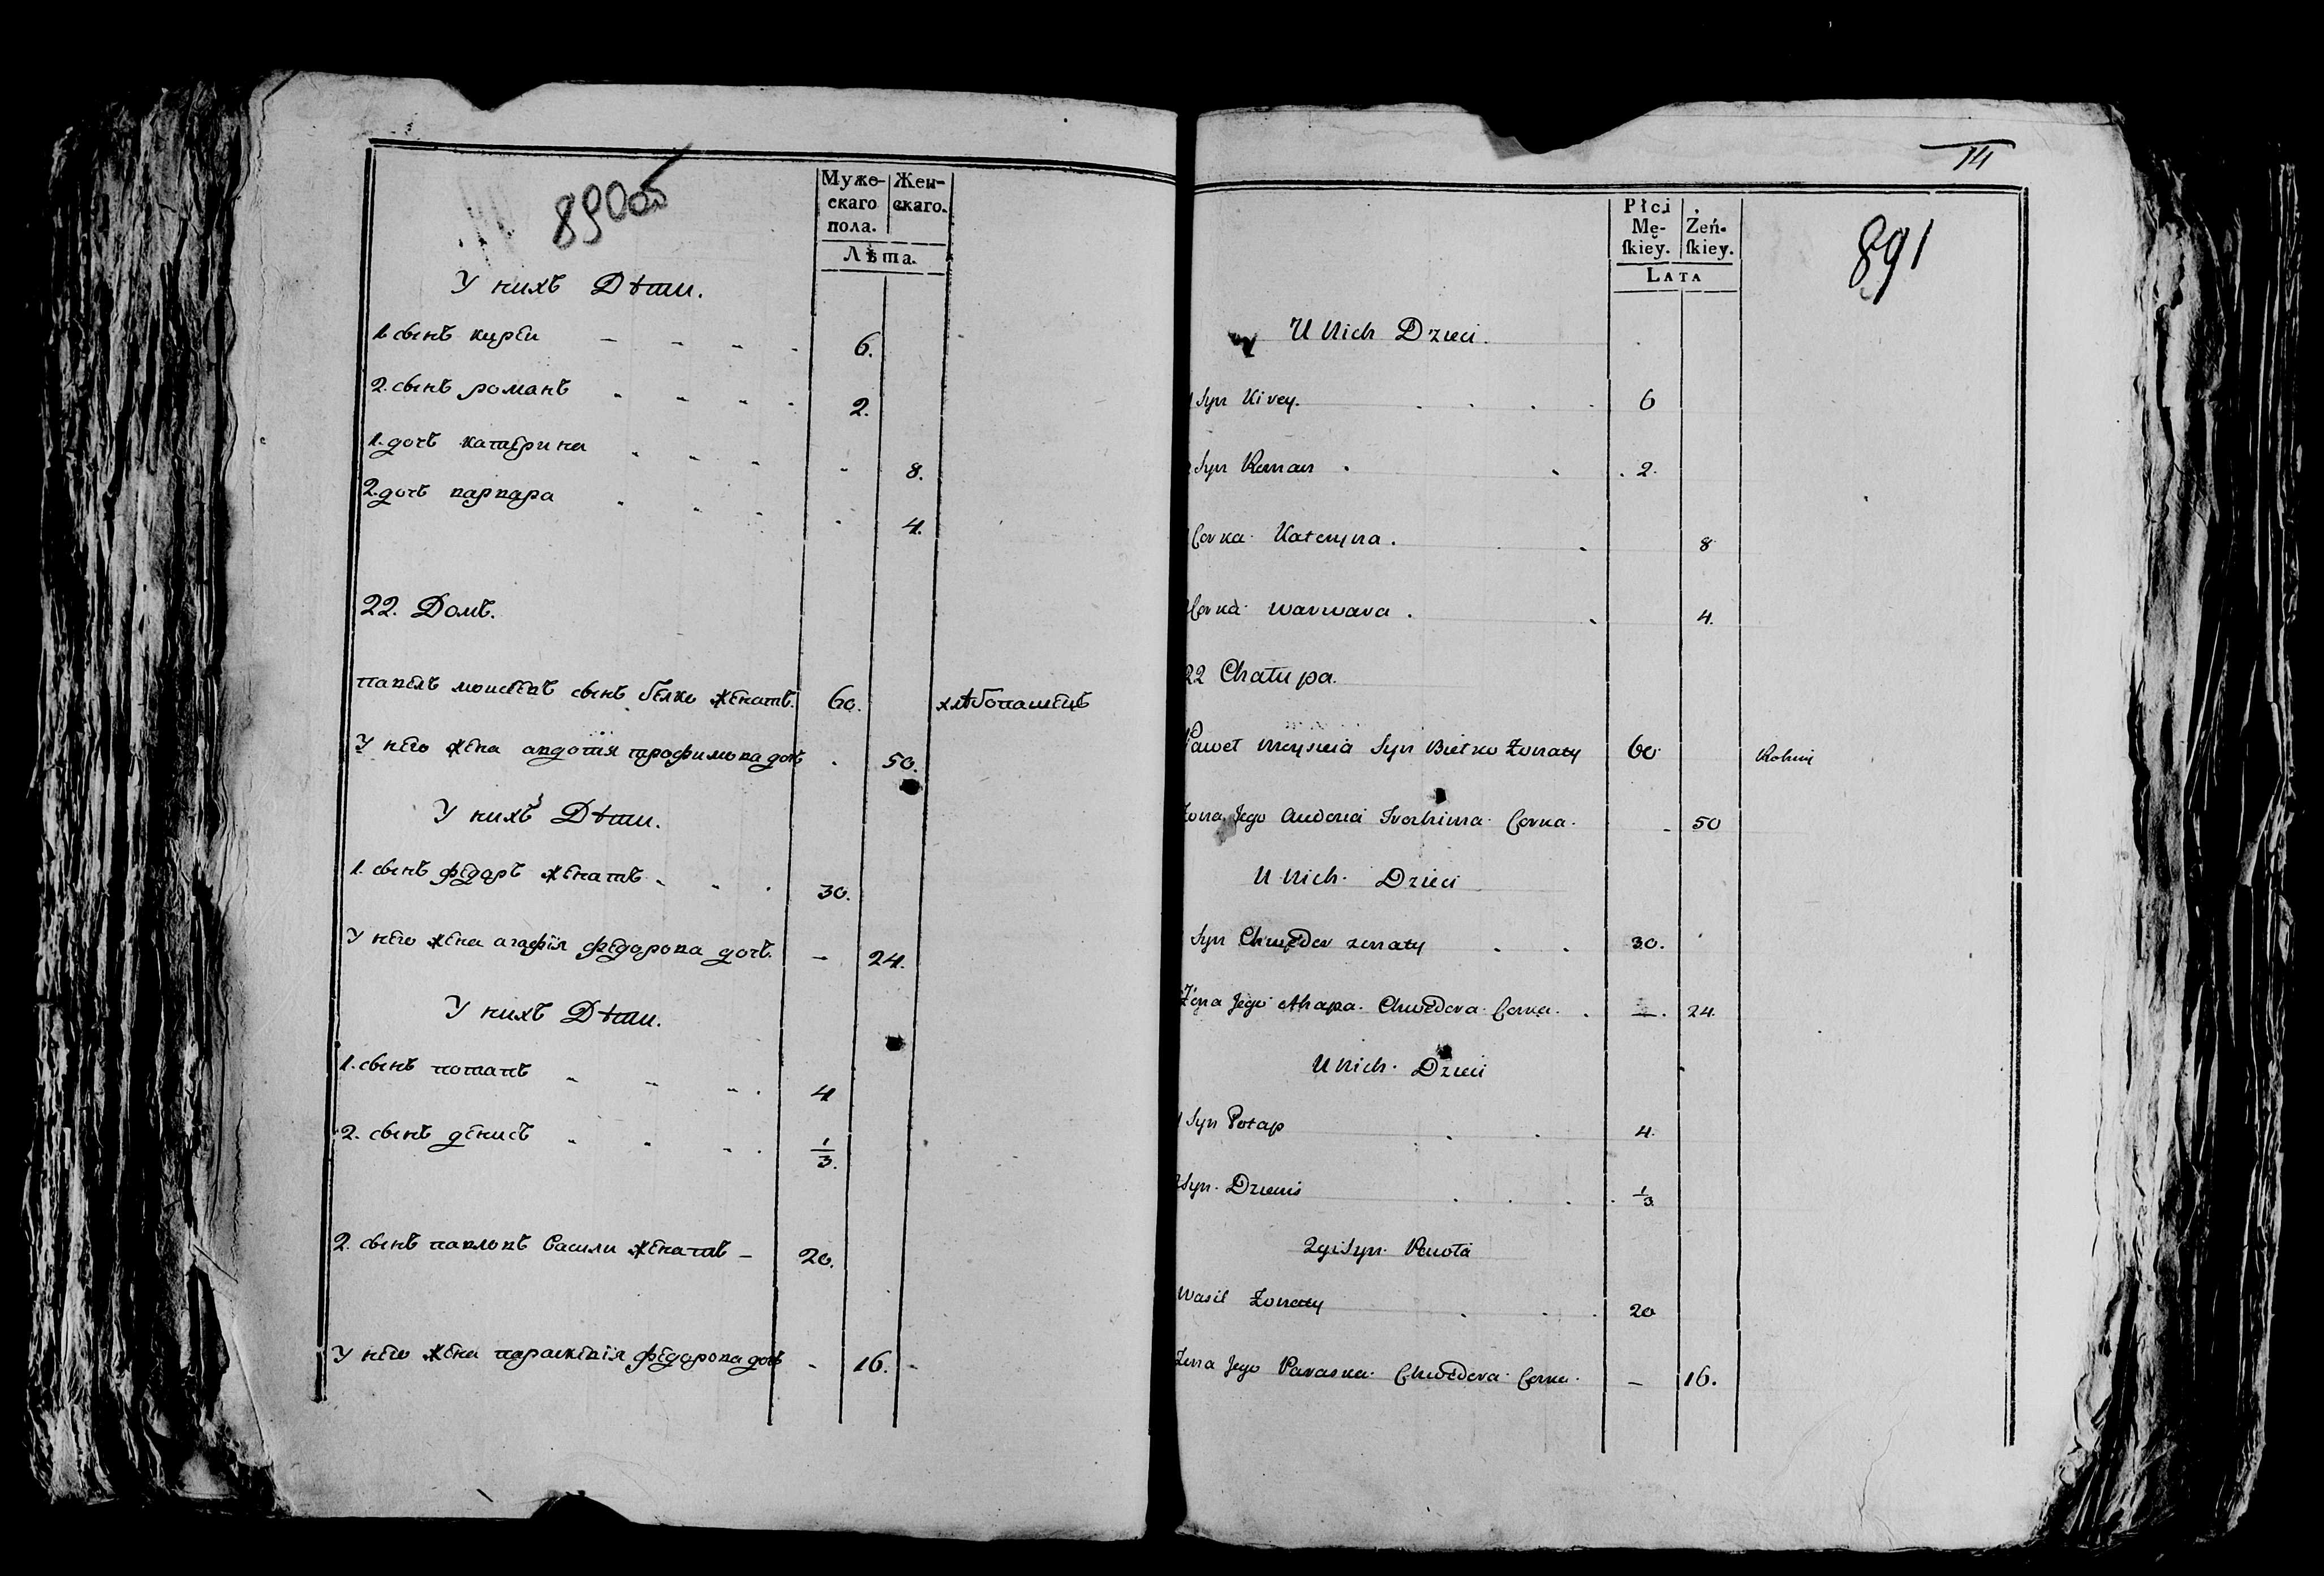 890об
Муже- Жен-
скаго скаго.
пола.
Лѣта.
У нихъ Дѣти.
1. сынъ кирѣи - - - - 6.
2. сынъ романъ - - - - 2.
1. дочь катерина - - - - 8.
2. дочь варвара - - - - 4.
22. Домъ.
павелъ моисеевъ сынъ белко женатъ. 60. хлѣбопашецъ
У него жена авдотия трофимова дочь - 50.
У нихъ Дѣти.
1. сынъ федаръ женатъ - - - 30.
У него жена агафія федарова дочь. - 24.
У нихъ Дѣти.
1. сынъ потапъ - - - - 4
2. сынъ денисъ - - - - 1/3.
2. сынъ павловъ василеи женатъ - 20.
У него жена параскевія федарова дочь - 16. -
14
891
Płci Żeń-
Mę- ſkiey.
ſkiey.
LATA
U Nich Dzieci.
Syn Kirey. . . . . 6
Syn Roman . . . 2.
Corka Kateryna. . . 8
Corka warwara . . 4.
22 Chałupa.
Paweł Moysieia Syn Biełko Żonaty 60
Żona Jego Audocia Corka. - 50
U Nich Dzieci
Syn Chwedor zonaty . . 30.
Żona Jego Ahapa Chwedora Corka. . - . 24.
U Nich Dzieci
1 Syn Potap . . 4.
2 Syn Dzienis . . . . 1/3
2gi Syn Pawła
Wasil Żonaty . . . 20
Żona Jego Paraska Chwedora Corka. - 16.